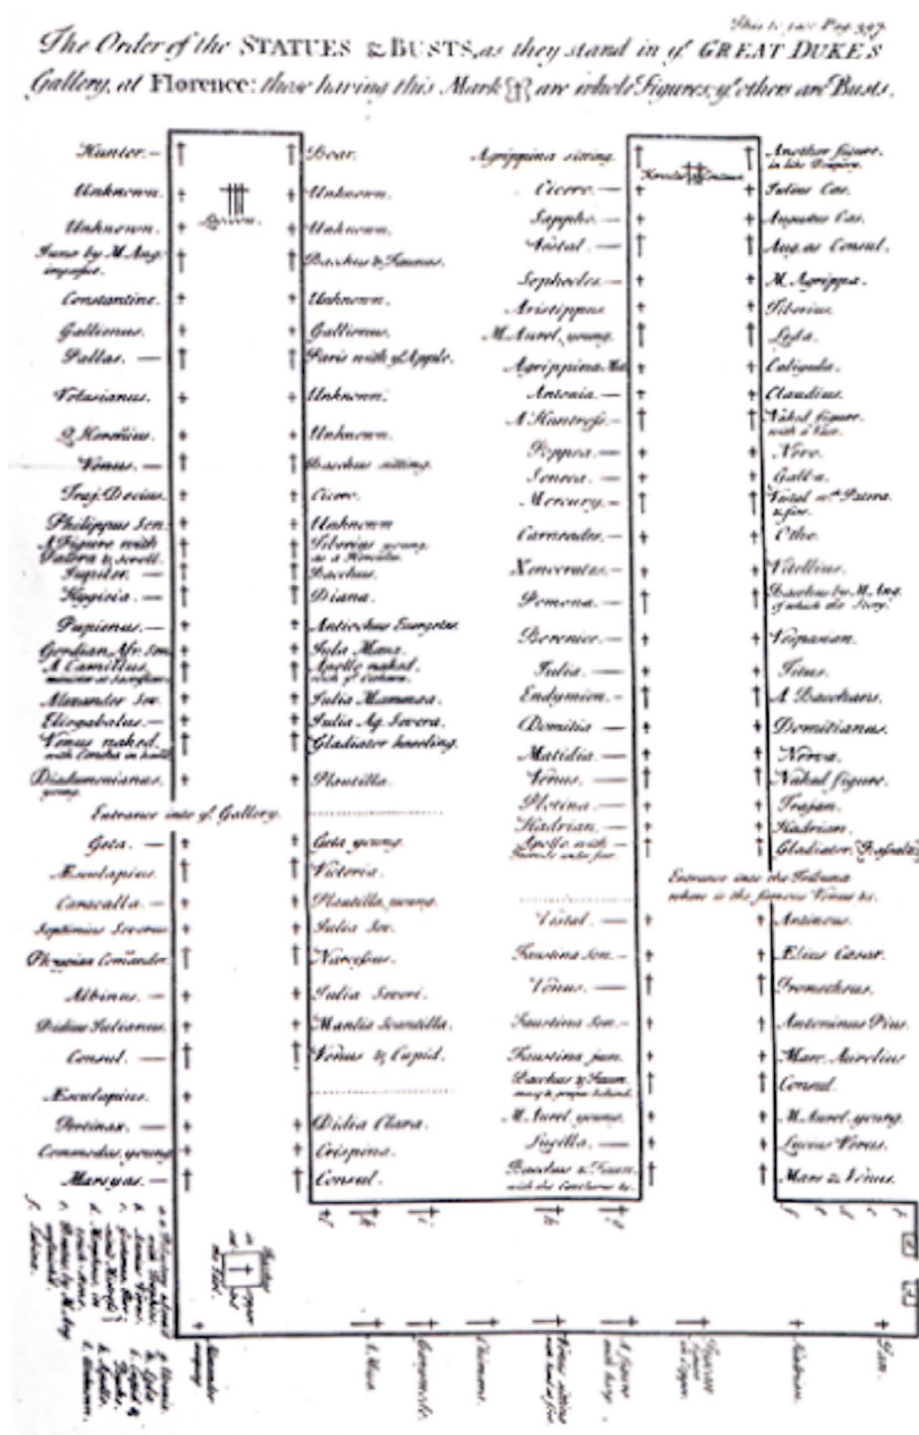 This to face Pag. 397.
The Order of the STATUES & BUSTS, as they stand in ye. GREAT DUKES
Gallery, at Florence: those having this Mark are whole Figures, ye others are Busts.
Hunter.
Unknown.
Unknown.
Juno by M. Ang.
imperfect.
Constantine.
Gallienus.
Pallas.
Volusianus.
Q. Herennius.
Venus.
Traj. Decius.
Philippus Sen.
A Figure with
Patera & scroll.
Jupiter.
Hygieia.
Pupienus.
Gordian Afr. Sen.
A Camillus,
minister at Sacrifices.
Alexander Sev.
Eliogabalus.
Venus naked.
with Concha in hand
Diadumenianus.
young.
Entrance into ye. Gallery.
Geta.
Æsculapius.
Caracalla.
Septimius Severus
Phrygian Comander.
Albinus.
Didius Julianus.
Consul.
Æsculapius.
Pertinax.
Commodus. young
Marsyas.
Boar.
Unknown.
Unknown.
Bacchus & Faunus.
Unknown.
Gallienus.
Paris with ye Apple.
Unknown.
Unknown.
Bacchus sitting.
Cicero.
Unknown
Tiberius young
as a Hercules.
Bacchus.
Diana.
Antiochus Euergetes.
Julia Mæsa.
Apollo naked.
with ye Cithara.
Julia Mammæa.
Julia Aq. Severa.
Gladiator kneeling.
Plautilla.
Geta young.
Victoria.
Plautilla, young.
Julia Sev.
Narcissus.
Julia Severi.
Manlia Scantilla.
Venus & Cupid.
Didia Clara.
Crispina.
Consul.
Agrippina sitting.
Cicero.
Sappho.
Vestal.
Sophocles.
Aristippus
M. Aurel. young.
Agrippina
Antonia.
A Huntress.
Poppea.
Seneca.
Mercury.
Carneades.
Xenocrates.
Pomona.
Berenice.
Julia.
Endymion.
Domitia
Matidia
Venus.
Plotina.
Hadrian.
Apollo with
Vestal.
Faustina Sen.
Venus.
Faustina Sen.
Faustina jun.
Bacchus & Faun.
M. Aurel. young.
Lucilla.
Bacchus & Faun.
Another figure.
in like Drapery.
Julius Cæs.
Augustus Cæs.
Aug. as Consul.
M. Agrippa.
Tiberius.
Leda.
Caligula.
Claudius.
Naked figure.
with a Vase.
Nero.
Galba.
Vestal wth. Patera
& fire.
Otho.
Vitellius.
Bacchus by M. Ang.
of which the Story.
Vespasian.
Titus.
A Bacchans.
Domitianus.
Nerva.
Naked figure.
Trajan.
Hadrian.
Gladiator.
Entrance into the Tribuna
where is the famous Venus &c.
Antinous.
Ælius Cæsar.
Prometheus.
Antoninus Pius.
Marc. Aurelius
Consul.
M. Aurel. young.
Lucius Verus.
Mars & Venus.
Ganymede.
Venus sitting
A figure
Hadrian.
Pan.